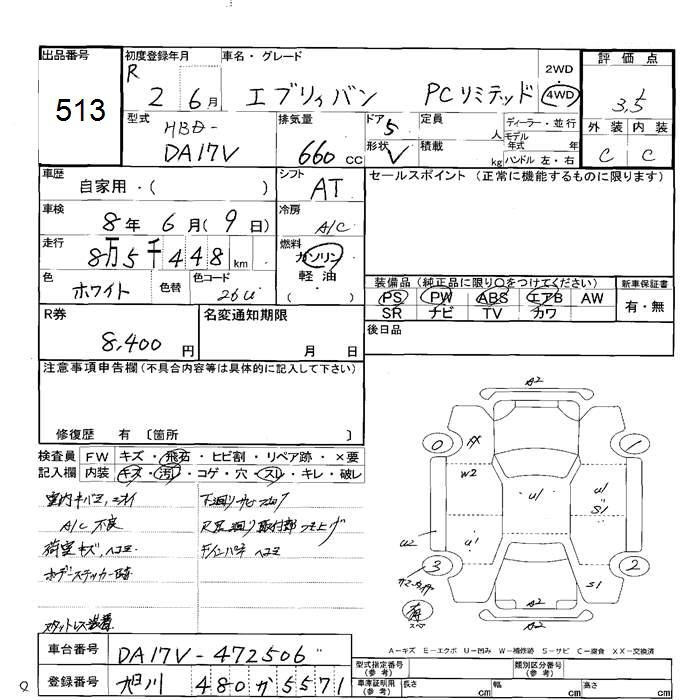 出品番号
513
初度登録年月
R 2 6月
車名・グレード
エブリィバン PCリミテッド
2WD
4WD
評価点
3.5
外装 内装
C C
型式
HBD-
DA17V
排気量
660 CC
ドア
5
形状
V
定員
人
積載
kg
ディーラー・並行
モデル
年式 年
ハンドル 左・右
車歴
自家用・( )
シフト
AT
セールスポイント (正常に機能するものに限ります)
車検
8年 6月(9日)
冷房
A/C
走行
8万5千448km
燃料
ガソリン
軽油
( )
色
ホワイト
色替
色コード
26U
装備品 (純正品に限り○をつけてください)
PS PW ABS エアB AW
SR ナビ TV カワ
新車保証書
有・無
R券
8,400円
名変通知期限
月 日
後日品
注意事項申告欄 (不具合内容等は具体的に記入して下さい)
修復歴 有 〔箇所 〕
検査員
記入欄
FW キズ・飛石・ヒビ割・リペア跡・×要
内装 キズ・汚れ・コゲ・穴・スレ・キレ・破レ
A/C 不良
荷室キズ、ヘコミ
スタットレス装着
A2
0
AX
1
W2
U1
U1
S1
U2
U1
3
2
S1
A2
有
スペア
A2
A－キズ E－エクボ U－凹み W－補修跡 S－サビ C－腐食 XX－交換済
車台番号
DA17V-472506
登録番号
旭川 480 か 5571
型式指定番号
(参考)
類別区分番号
(参考)
車庫証明用
(参考)
長さ
cm
幅
cm
高さ
cm